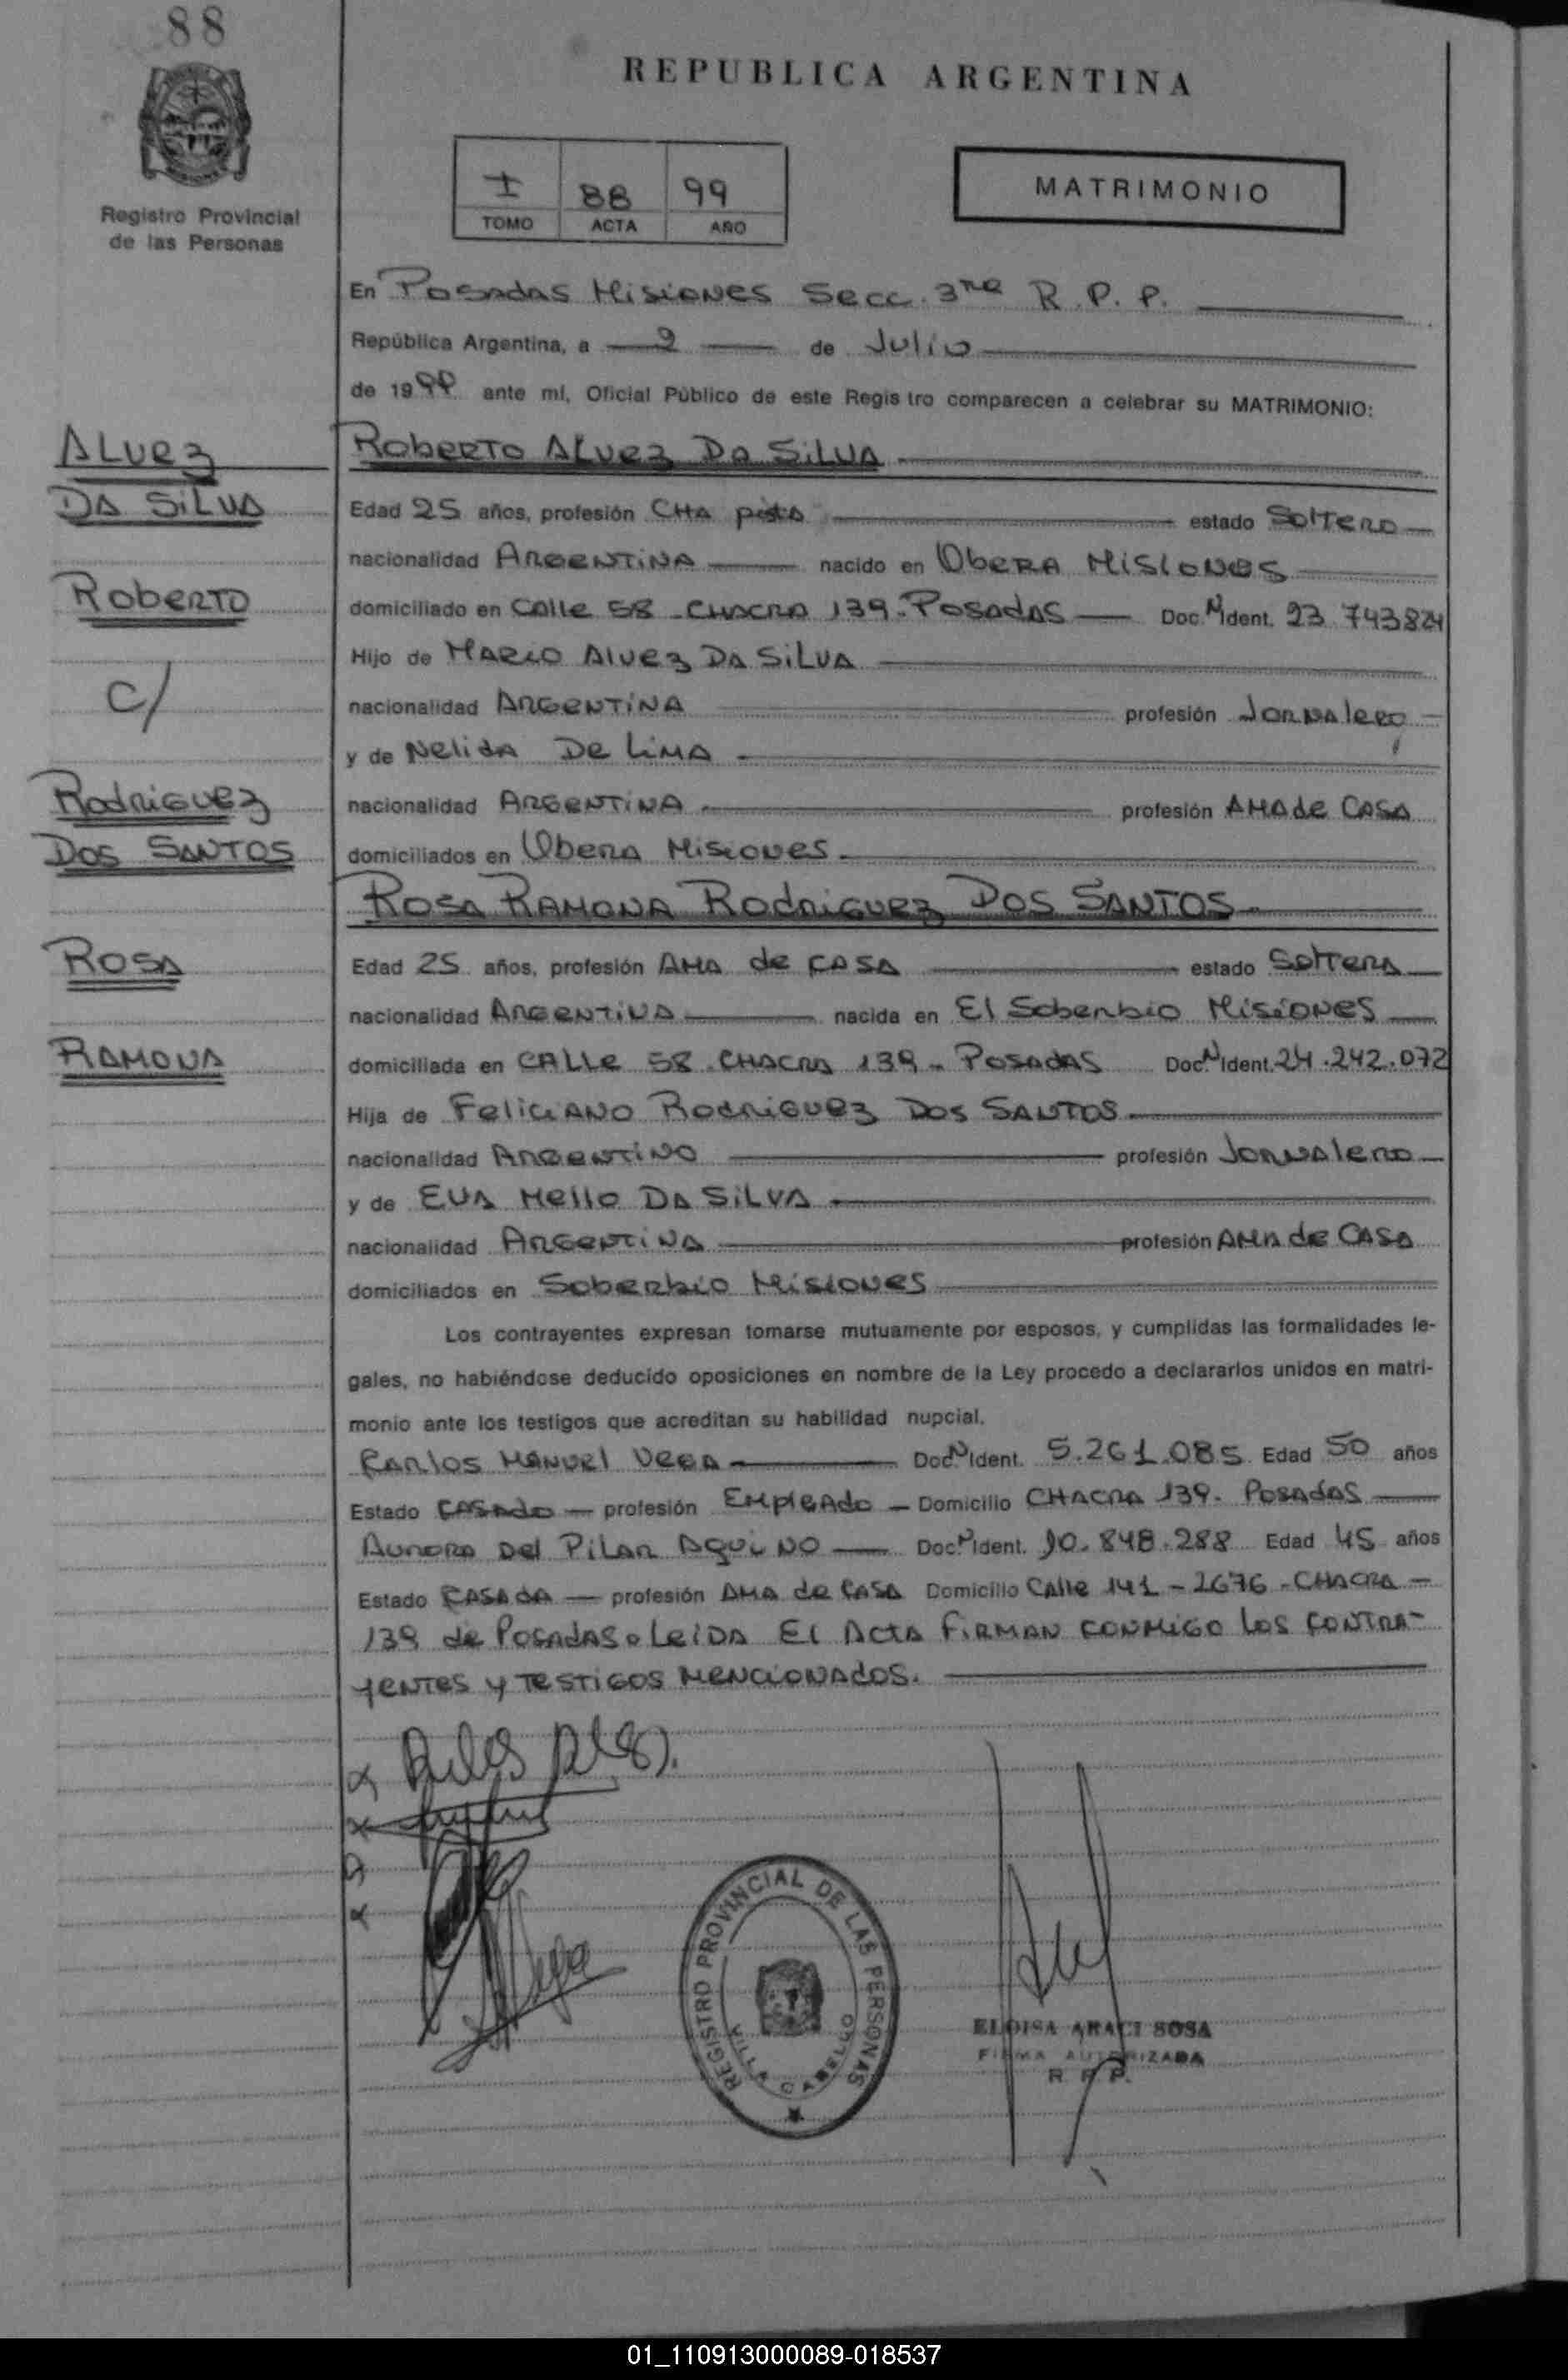 88
REPUBLICA ARGENTINA
Registro Provincial
de las Personas
I 88 99
TOMO ACTA AÑO
MATRIMONIO
En Posadas Misiones Secc. 3ra R.P.P.
República Argentina, a 2 de Julio
de 1999 ante mí, Oficial Público de este Registro comparecen a celebrar su MATRIMONIO:
Alvez
Da Silva
Roberto
c/
Rodriguez
Dos Santos
Rosa
Ramona
Roberto Alvez Da Silva
Edad 25 años, profesión Chapista estado Soltero
nacionalidad Argentina nacido en Obera Misiones
domiciliado en Calle 58 - Chacra 139 - Posadas Doc. N Ident. 23 743824
Hijo de Mario Alvez Da Silva
nacionalidad Argentina profesión Jornalero
y de Nelida De Lima
nacionalidad Argentina profesión Ama de Casa
domiciliados en Obera Misiones
Rosa Ramona Rodriguez Dos Santos
Edad 25 años, profesión Ama de Casa estado Soltera
nacionalidad Argentina nacida en El Soberbio Misiones
domiciliada en Calle 58 - Chacra 139 - Posadas Doc. N Ident. 24.242.072
Hija de Feliciano Rodriguez Dos Santos
nacionalidad Argentino profesión Jornalero
y de Eva Mello Da Silva
nacionalidad Argentina profesión Ama de Casa
domiciliados en Soberbio Misiones
Los contrayentes expresan tomarse mutuamente por esposos, y cumplidas las formalidades le-
gales, no habiéndose deducido oposiciones en nombre de la Ley procedo a declararlos unidos en matri-
monio ante los testigos que acreditan su habilidad nupcial.
Carlos Manuel Vega Doc. N Ident. 5.261.085 Edad 50 años
Estado Casado profesión Empleado Domicilio Chacra 139 - Posadas
Aurora Del Pilar Aquino Doc. N Ident. 10.848.288 Edad 45 años
Estado Casada profesión Ama de Casa Domicilio Calle 141 - 2676 - Chacra -
139 de Posadas. Leida El Acta Firman conmigo los contra-
yentes y testigos mencionados.
REGISTRO PROVINCIAL DE LAS PERSONAS
VILLA CABELLO
ELOISA ARACI SOSA
FIRMA AUTORIZADA
R. P. P.
01_110913000089-018537